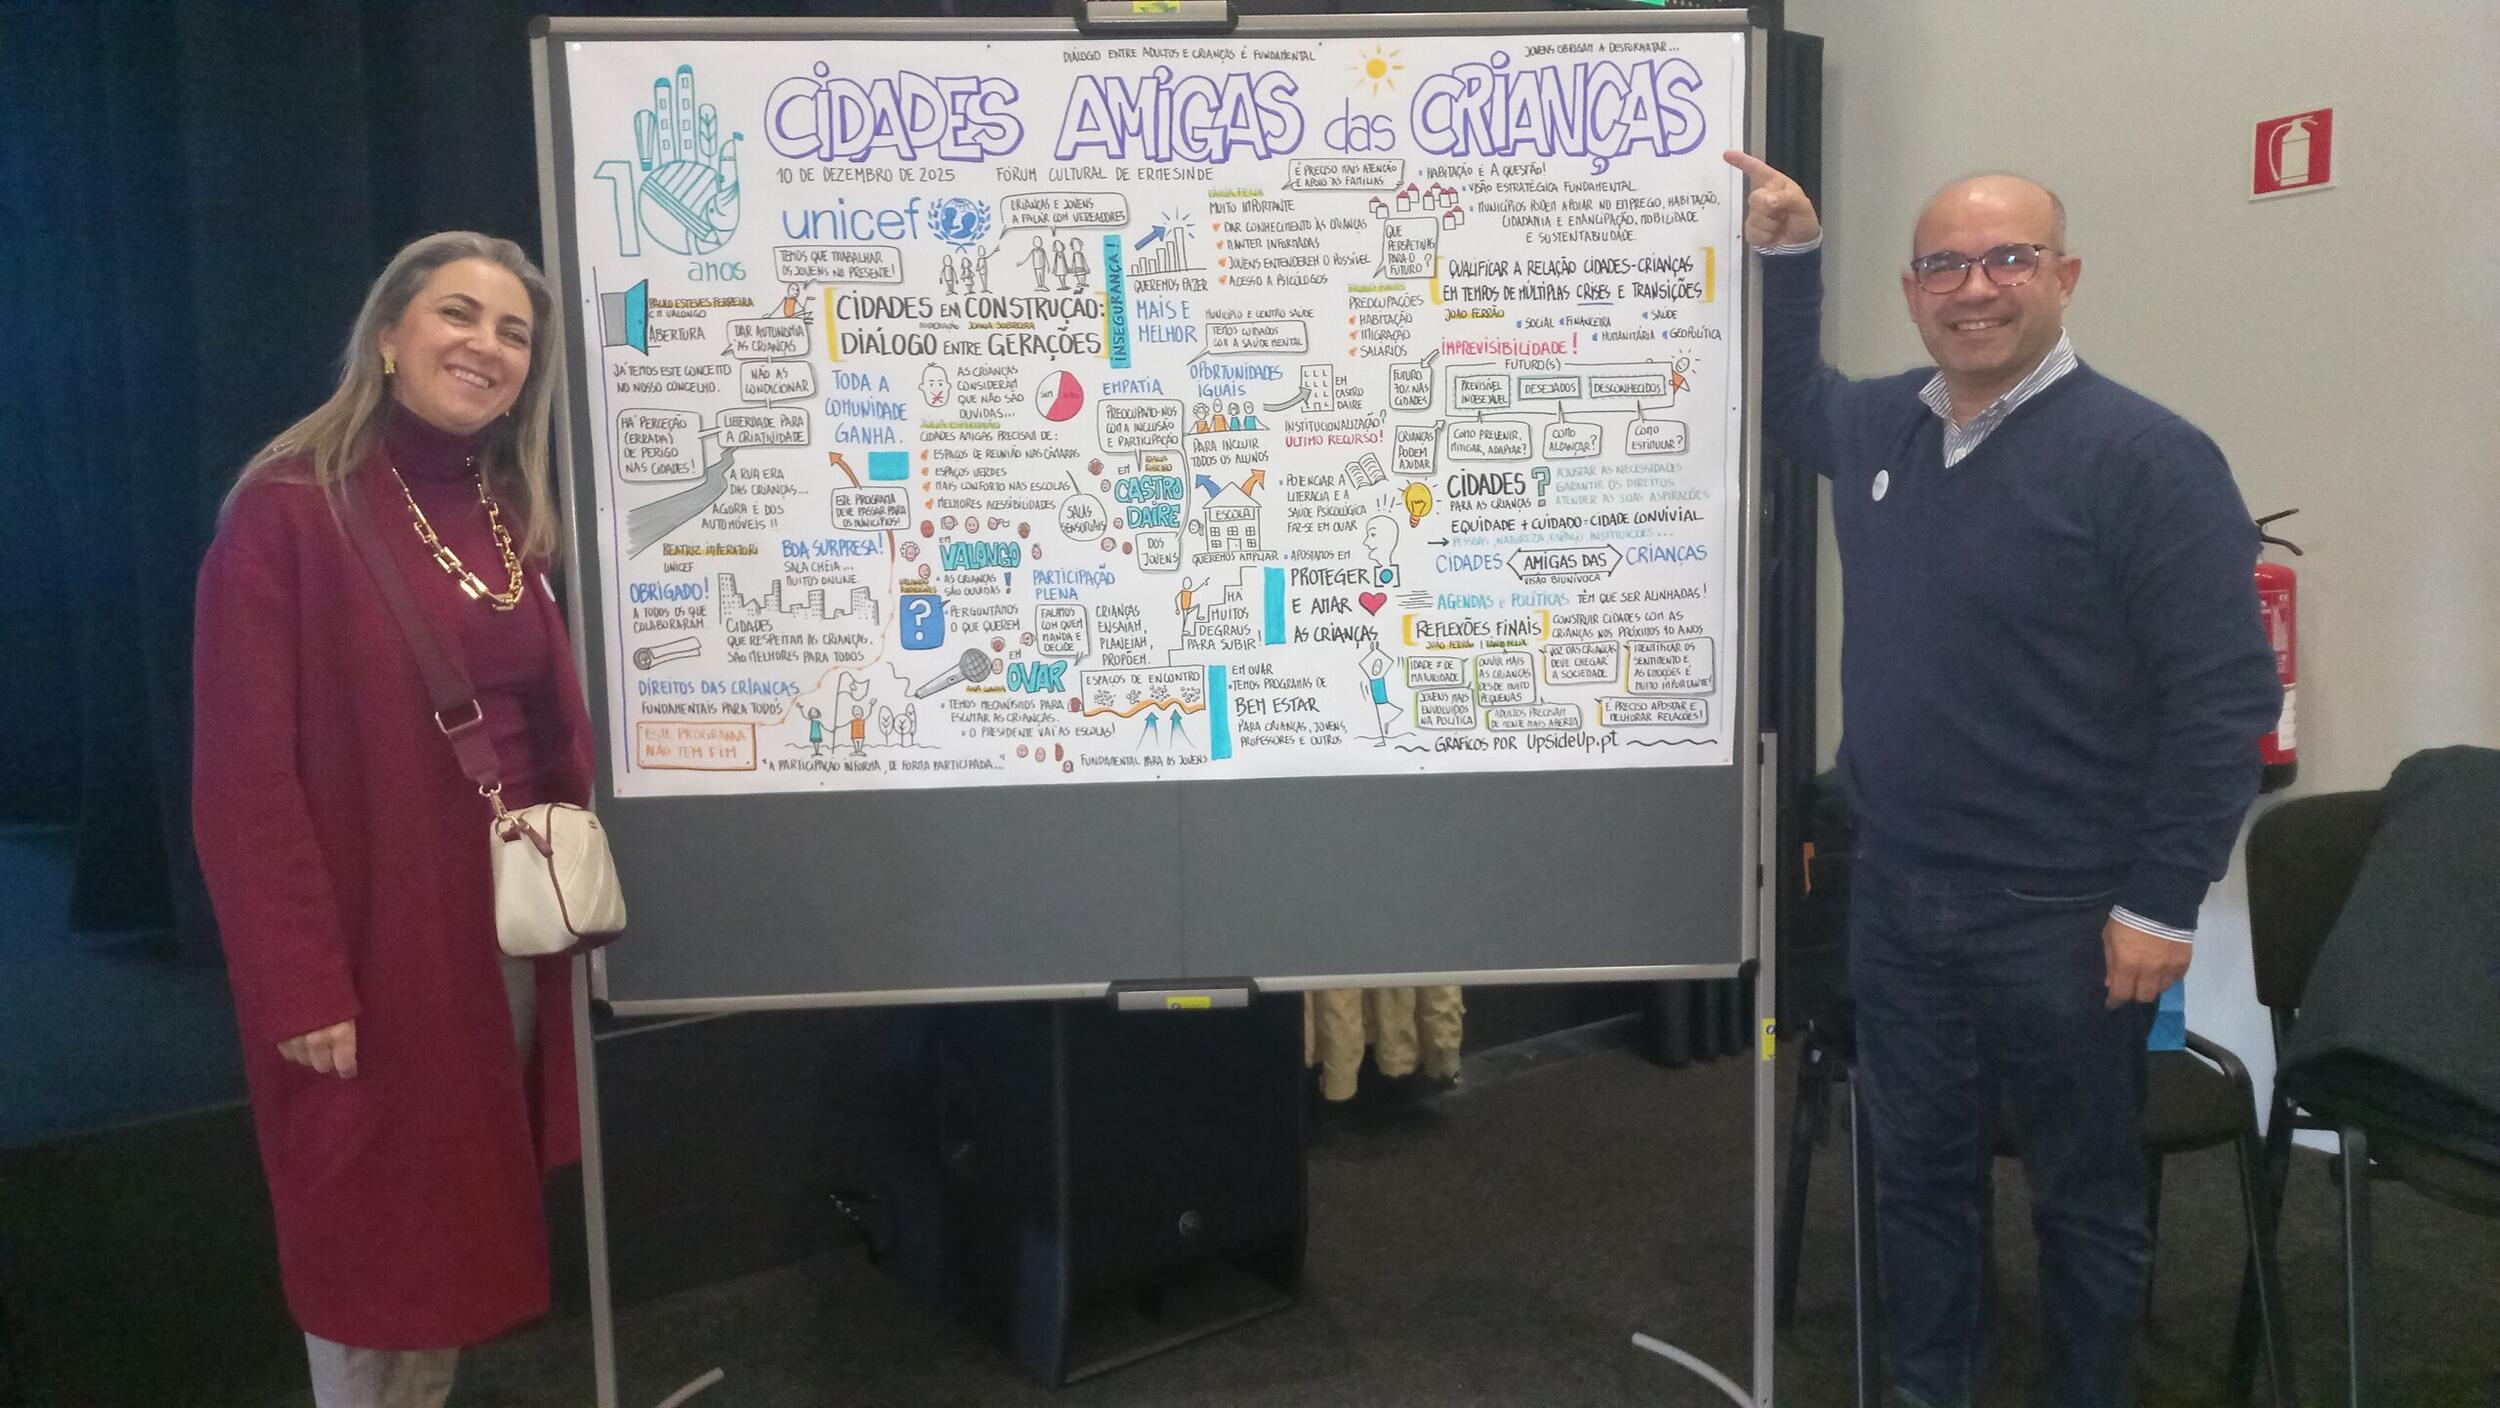 DIÁLOGO ENTRE ADULTOS E CRIANÇAS É FUNDAMENTAL
JOVENS OBRIGAM A DESFORMATAR...
CIDADES AMIGAS das CRIANÇAS
10 anos
10 DE DEZEMBRO DE 2025
FÓRUM CULTURAL DE ERMESINDE
unicef
CRIANÇAS E JOVENS
A FALAR COM VEREADORES
TEMOS QUE TRABALHAR
OS JOVENS NO PRESENTE!
PAULO ESTEVES FERREIRA
CM VALONGO
ABERTURA
DAR AUTONOMIA
ÀS CRIANÇAS
JÁ TEMOS ESTE CONCEITO
NO NOSSO CONCELHO.
NÃO AS
CONDICIONAR
HÁ PERCEÇÃO
(ERRADA)
DE PERIGO
NAS CIDADES!
LIBERDADE PARA
A CRIATIVIDADE
A RUA ERA
DAS CRIANÇAS...
AGORA É DOS
AUTOMÓVEIS!!
BEATRIZ IMPERATORI
UNICEF
OBRIGADO!
A TODOS OS QUE
COLABORARAM.
BOA SURPRESA!
SALA CHEIA...
MUITOS ONLINE
CIDADES
QUE RESPEITAM AS CRIANÇAS,
SÃO MELHORES PARA TODOS
DIREITOS DAS CRIANÇAS
FUNDAMENTAIS PARA TODOS
ESTE PROGRAMA
NÃO TEM FIM
"A PARTICIPAÇÃO INFORMA, DE FORMA PARTICIPADA..."
CIDADES EM CONSTRUÇÃO:
MODERAÇÃO: JOANA SOBREIRA
DIÁLOGO ENTRE GERAÇÕES
INSEGURANÇA!
TODA A
COMUNIDADE
GANHA.
ESTE PROGRAMA
DEVE PASSAR PARA
OS MUNICÍPIOS!
AS CRIANÇAS
CONSIDERAM
QUE NÃO SÃO
OUVIDAS...
SIM
NÃO
CIDADES AMIGAS PRECISAM DE:
ESPAÇOS DE REUNIÃO NAS CÂMARAS
ESPAÇOS VERDES
MAIS CONFORTO NAS ESCOLAS
MELHORES ACESSIBILIDADES
SALAS
SENSORIAIS
EM
VALONGO
AS CRIANÇAS
SÃO OUVIDAS!
?
PERGUNTAMOS
O QUE QUEREM
PARTICIPAÇÃO
PLENA
FALAMOS
COM QUEM
MANDA E
DECIDE
CRIANÇAS
ENSAIAM,
PLANEIAM,
PROPÕEM.
EM
OVAR
ANA CUNHA
TEMOS MECANISMOS PARA
ESCUTAR AS CRIANÇAS.
O PRESIDENTE VAI ÀS ESCOLAS!
ESPAÇOS DE ENCONTRO
FUNDAMENTAL PARA OS JOVENS
QUEREMOS FAZER
MAIS E
MELHOR
EMPATIA
PREOCUPAMO-NOS
COM A INCLUSÃO
E PARTICIPAÇÃO
EM
CASTRO
DAIRE
DOS
JOVENS
MUITO IMPORTANTE
DAR CONHECIMENTO ÀS CRIANÇAS
MANTER INFORMADAS
JOVENS ENTENDEREM O POSSÍVEL
ACESSO A PSICÓLOGOS
MUNICÍPIO E CENTRO SAÚDE
TEMOS CUIDADOS
COM A SAÚDE MENTAL
OPORTUNIDADES
IGUAIS
EM
CASTRO
DAIRE
PARA INCLUIR
TODOS OS ALUNOS
INSTITUCIONALIZAÇÃO?
ÚLTIMO RECURSO!
ESCOLA
QUEREMOS AMPLIAR
POTENCIAR A
LITERACIA E A
SAÚDE PSICOLÓGICA
FAZ-SE EM OVAR
APOSTAMOS EM
PROTEGER
E AMAR
AS CRIANÇAS
HÁ
MUITOS
DEGRAUS
PARA SUBIR!
EM OVAR
TEMOS PROGRAMAS DE
BEM ESTAR
PARA CRIANÇAS, JOVENS,
PROFESSORES E OUTROS
É PRECISO MAIS ATENÇÃO
E APOIO ÀS FAMÍLIAS
QUE
PERSPETIVAS
PARA O
FUTURO?
PREOCUPAÇÕES
HABITAÇÃO
IMIGRAÇÃO
SALÁRIOS
HABITAÇÃO É A QUESTÃO!
VISÃO ESTRATÉGICA FUNDAMENTAL
MUNICÍPIOS PODEM APOIAR NO EMPREGO, HABITAÇÃO,
CIDADANIA E EMANCIPAÇÃO, MOBILIDADE
E SUSTENTABILIDADE.
QUALIFICAR A RELAÇÃO CIDADES-CRIANÇAS
EM TEMPOS DE MÚLTIPLAS CRISES E TRANSIÇÕES
JOÃO FERRÃO
SOCIAL
FINANCEIRA
SAÚDE
HUMANITÁRIA
GEOPOLÍTICA
IMPREVISIBILIDADE!
FUTURO
70% NAS
CIDADES
FUTURO(S)
PREVISÍVEL
INDESEJÁVEL
DESEJADOS
DESCONHECIDOS
COMO PREVENIR,
MITIGAR, ADAPTAR?
COMO
ALCANÇAR?
COMO
ESTIMULAR?
CRIANÇAS
PODEM
AJUDAR
CIDADES ?
PARA AS CRIANÇAS
AJUSTAR AS NECESSIDADES
GARANTIR OS DIREITOS
ATENDER AS SUAS ASPIRAÇÕES
EQUIDADE + CUIDADO = CIDADE CONVIVIAL
PESSOAS, NATUREZA, ESPAÇO, INSTITUIÇÕES...
CIDADES AMIGAS DAS CRIANÇAS
VISÃO BIUNÍVOCA
AGENDAS e POLÍTICAS TÊM QUE SER ALINHADAS!
REFLEXÕES FINAIS
CONSTRUIR CIDADES COM AS
CRIANÇAS NOS PRÓXIMOS 10 ANOS
IDADE ≠ DE
MATURIDADE
OUVIR MAIS
AS CRIANÇAS
DESDE MUITO
PEQUENAS
VOZ DAS CRIANÇAS
DEVE CHEGAR
À SOCIEDADE
IDENTIFICAR OS
SENTIMENTO E
AS EMOÇÕES É
MUITO IMPORTANTE!
JOVENS MAIS
ENVOLVIDOS
NA POLÍTICA
ADULTOS PRECISAM
DE MENTE MAIS ABERTA
É PRECISO APOSTAR E
MELHORAR RELAÇÕES!
GRÁFICOS POR UpSideUp.pt